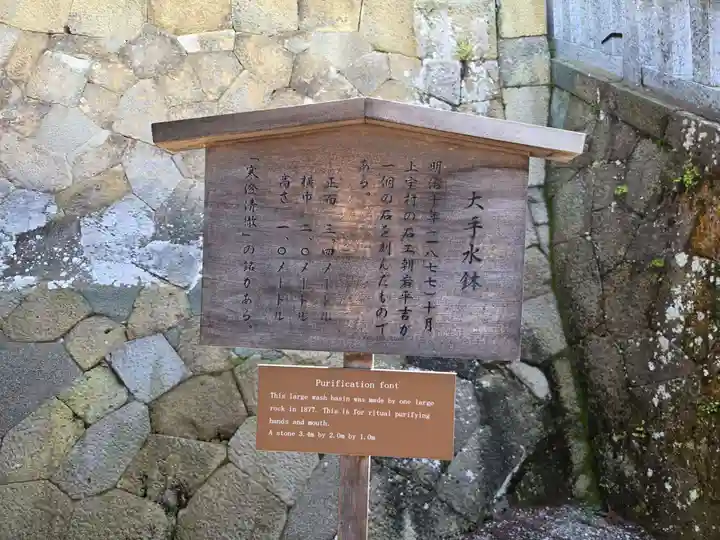 大手水鉢
明治十年(一八七七)十月
上宝村の石工朝岩平吉が
一個の石を刻んだもので
ある。
正面 三、四メートル
横巾 二、〇メートル
高さ 一、〇メートル
の銘がある。
Purification font
This large wash basin was made by one large
rock in 1877. This is for ritual purifying
hands and mouth.
A stone 3.4m by 2.0m by 1.0m